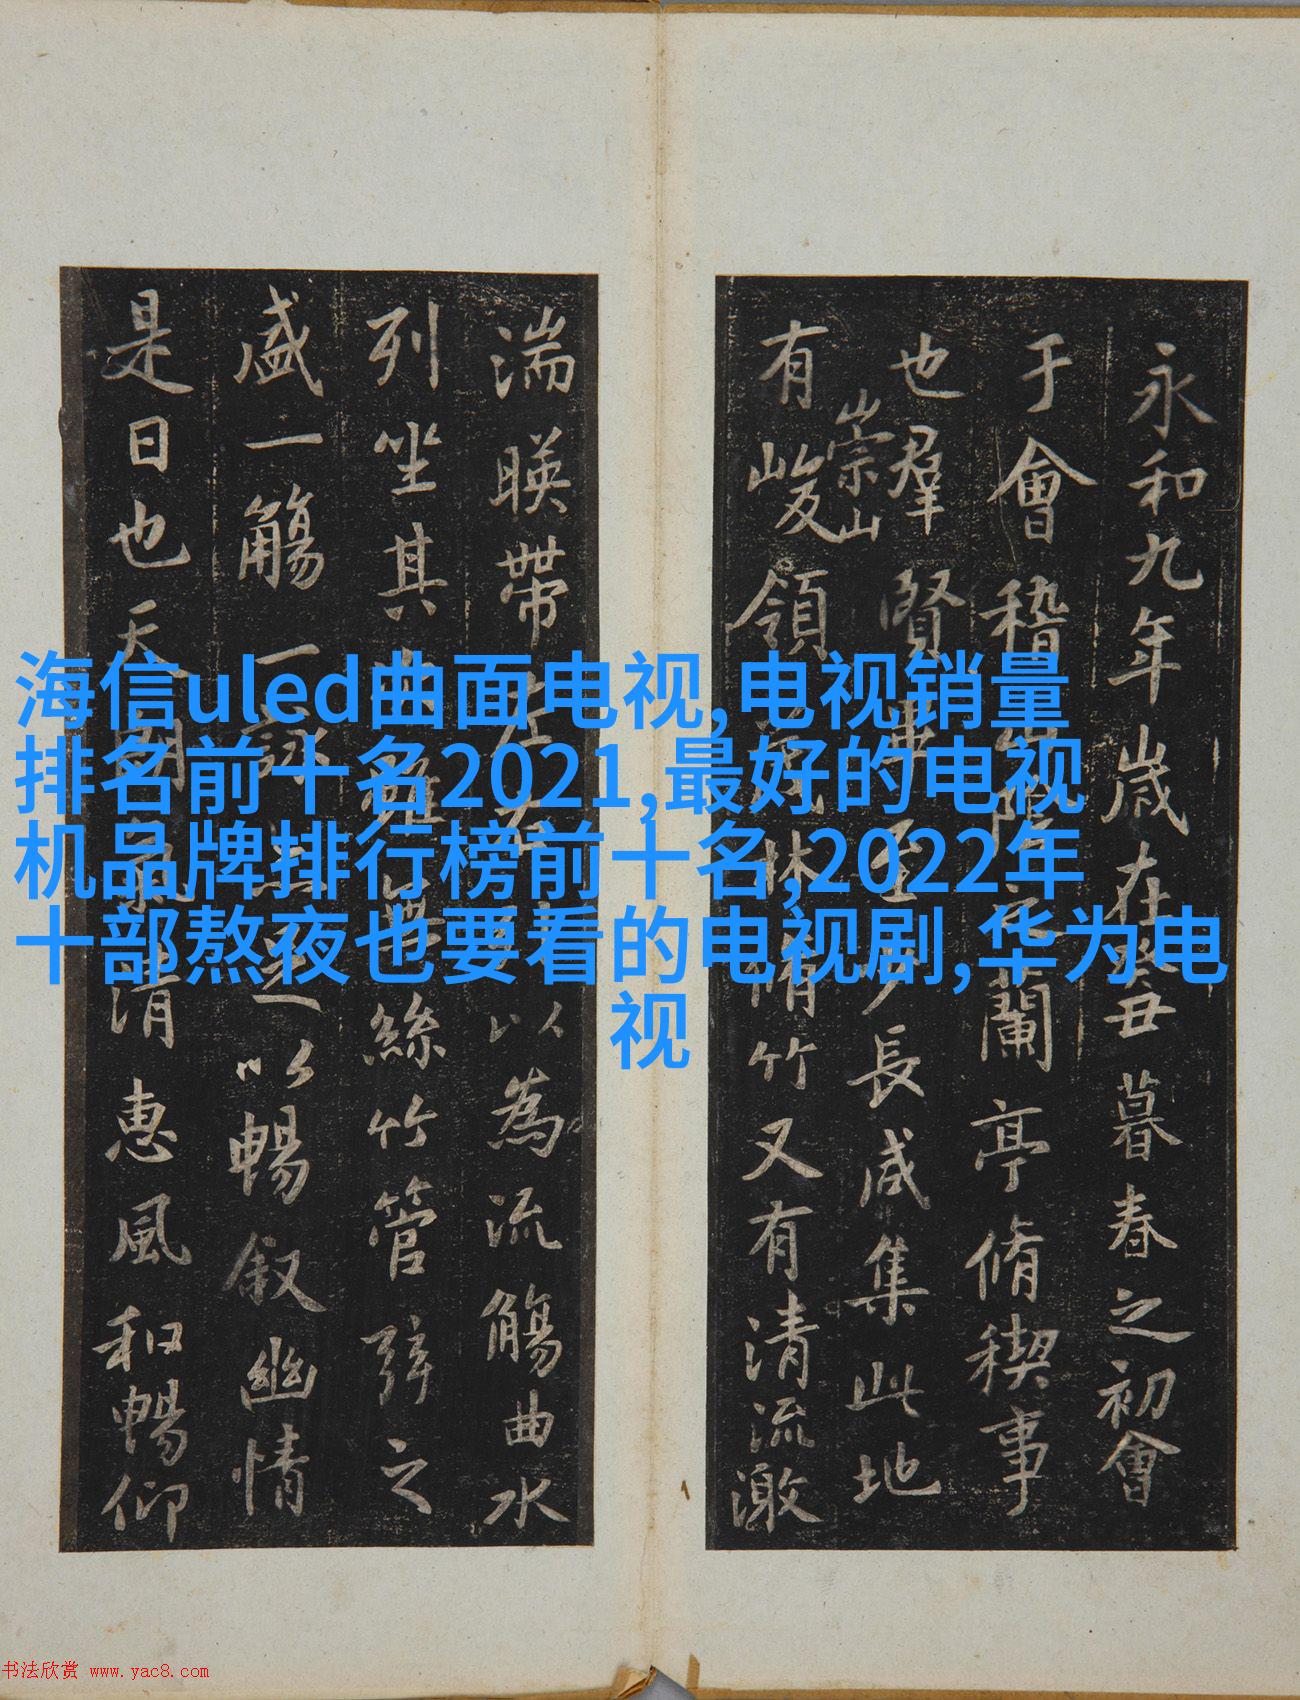 永和九年歲在癸丑暮春之初會
于會稽山陰之蘭亭脩稧事
也羣賢畢至少長咸集此地
崇山
有峻領茂林脩竹又有清流激
湍暎帶左右引以為流觴曲水
列坐其次雖無絲竹管弦之
盛一觴一詠亦足以暢叙幽情
是日也天朗氣清惠風和暢仰
海信uled曲面电视,电视销量
排名前十名2021,最好的电视
机品牌排行榜前十名,2022年
十部熬夜也要看的电视剧,华为电
视
书法欣赏 www.yac8.com